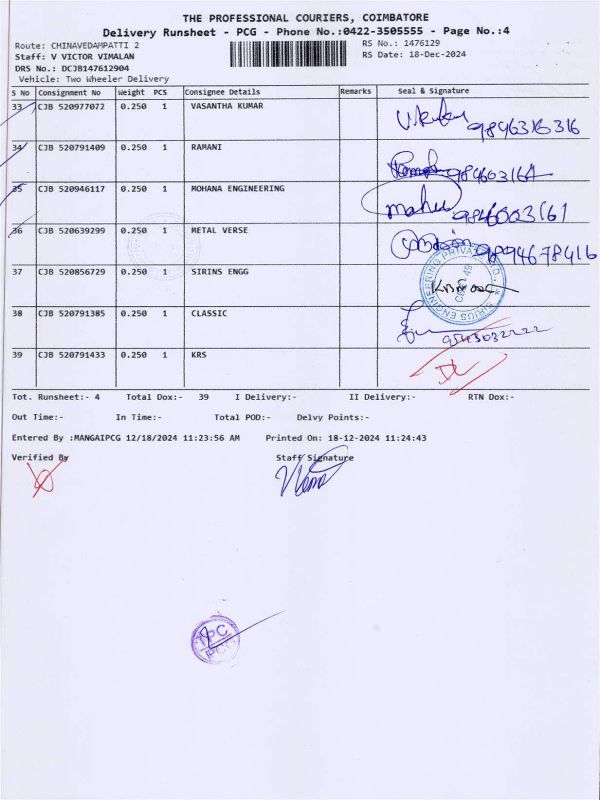 THE PROFESSIONAL COURIERS, COIMBATORE
Delivery Runsheet - PCG - Phone No.:0422-3505555 - Page No.:4
Route: CHINAVEDAMPATTI 2
RS No.: 1476129
Staff: V VICTOR VIMALAN
RS Date: 18-Dec-2024
DRS No.: DCJB147612904
Vehicle: Two Wheeler Delivery
S No Consignment No Weight PCS Consignee Details Remarks Seal & Signature
33 CJB 520977072 0.250 1 VASANTHA KUMAR
9846316316
34 CJB 520791409 0.250 1 RAMANI
984603164
35 CJB 520946117 0.250 1 MOHANA ENGINEERING
9846003161
36 CJB 520639299 0.250 1 METAL VERSE
9894678416
37 CJB 520856729 0.250 1 SIRINS ENGG
SIRIUS ENGINEERING PRIVATE
38 CJB 520791385 0.250 1 CLASSIC
39 CJB 520791433 0.250 1 KRS
Tot. Runsheet:- 4 Total Dox:- 39 I Delivery:- II Delivery:- RTN Dox:-
Out Time:- In Time:- Total POD:- Delvy Points:-
Entered By :MANGAIPCG 12/18/2024 11:23:56 AM Printed On: 18-12-2024 11:24:43
Verified By Staff Signature
TPC
PCG